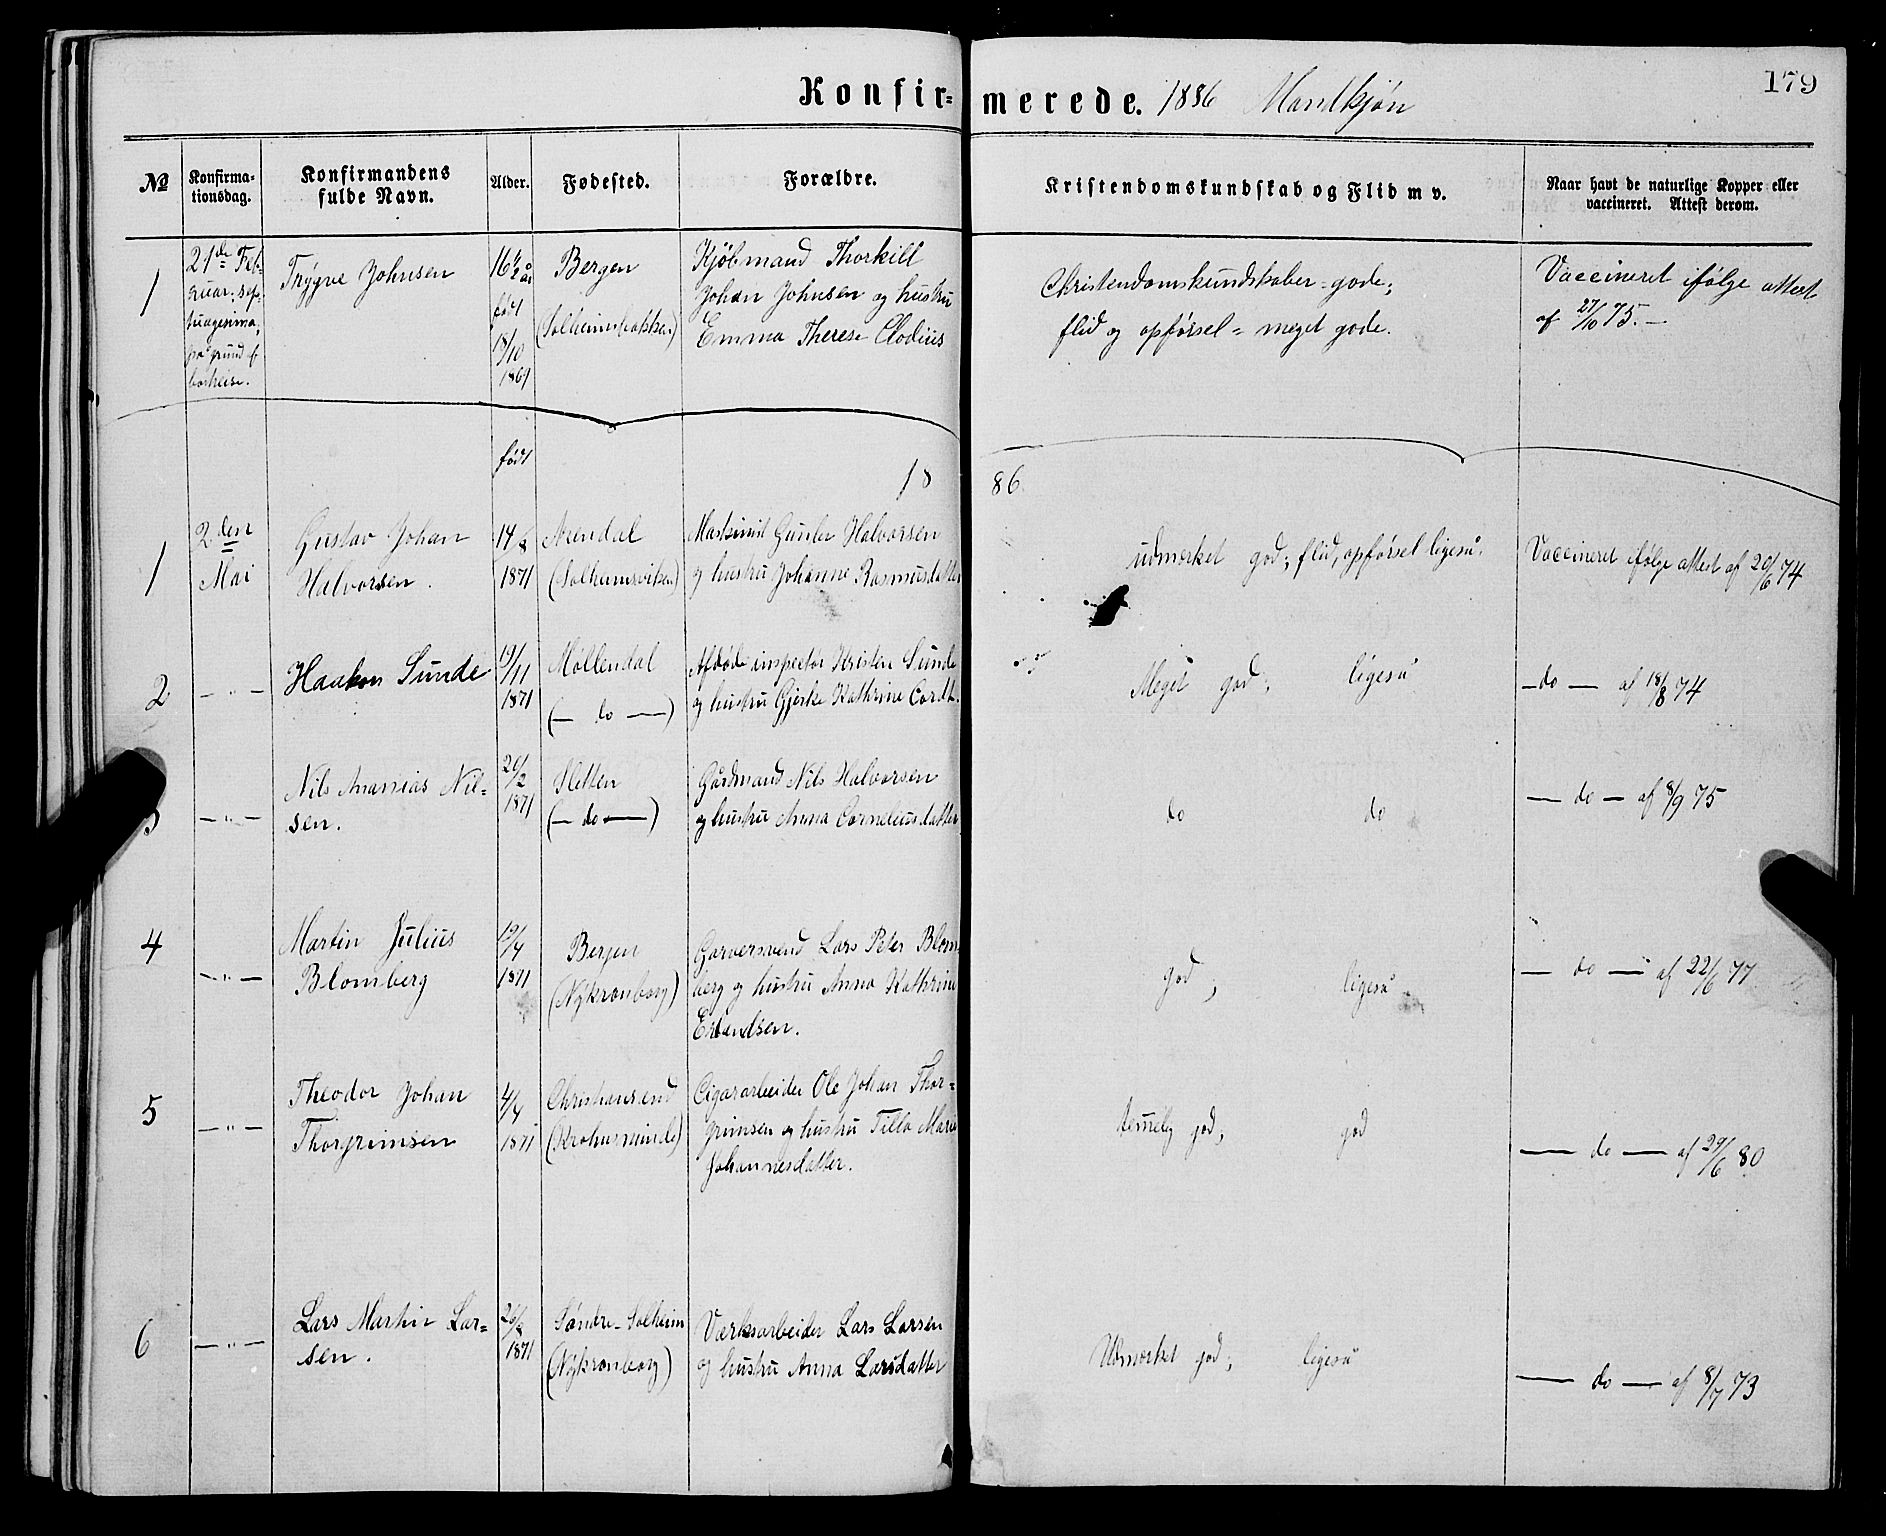 179
Konfir-merede. 1886 Mandkjøn
№
Konfirma-
tionsdag.
Konfirmandens
fulde Navn.
Alder.
Fødested.
Forældre.
Kristendomskundskab og Flid m v.
Naar havt de naturlige Kopper eller
vaccineret. Attest derom.
1
21de Feb-
ruar; sep-
tuagesima,
på grund f
Trygve Johnsen
16 1/2 år
født
18/10
1869
Bergen
Kjöbmand Thorkill
Johan Johnsen og hustru
Emma Therese Clodius
Christendomskundskaber = gode;
flid og opførsel = meget gode.
Vaccineret ifølge attest
af 27/10 75.—
født
18 86.
1
2den
Mai
Gustav Johan
Halvorsen.
1871
Arendal
(Solheimsviken)
Maskinist Gunder Halvorsen
og hustru Johanne Rasmusdatter
udmærket god; flid, opførsel ligeså.
Vaccineret ifølge attest af 20/6 74
2
— " —
Haakon Sunde
19/11
1871
Møllendal
(— do —)
Afdøde inspectør Kristen Sunde
og hustru Gjerke Kathrine Cordt.
Meget god; ligeså
— do — af 18/8 74
3
— " —
Nils Ananias Nil-
sen.
1871
Sletten
(— do —)
Gårdmand Nils Halvorsen
og hustru Anna Corneliusdatter
do do
— do — af 8/9 75
4
— " —
Martin Julius
Blomberg
19/4
1871
Bergen
(Nykronborg)
Garversvend Lars Peter Blom-
berg og hustru Anna Kathrine
Erlandsen.
god; ligeså
— do — af 22/6 77
5
— " —
Theodor Johan
Thorgrimsen
4/4
1871
Christiansund
(Krohnsminde)
Cigararbeider Ole Johan Thor-
grimsen og hustru Tilla Marie
Johannesdatter.
temelig god; god
— do — af 29/6 80
6
— " —
Lars Martin Lar-
sen.
1871
Søndre-Solheim
(Nykronborg)
Værksarbeider Lars Larsen
og hustru Anna Larsdatter
Udmærket god; ligeså
— do — af 8/7 73